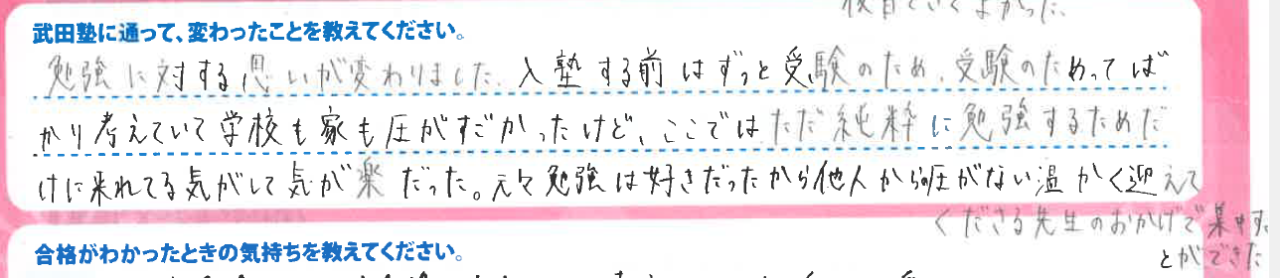 武田塾に通って、変わったことを教えてください。
勉強に対する思いが変わりました。入塾する前はずっと受験のため、受験のためってば
かり考えていて学校も家も圧がすごかったけど、ここではただ純粋に勉強するためだ
けに来れてる気がして気が楽だった。元々勉強は好きだったから他人から圧がない温かく迎えて
くださる先生のおかげで集中す
とができた
合格がわかったときの気持ちを教えてください。